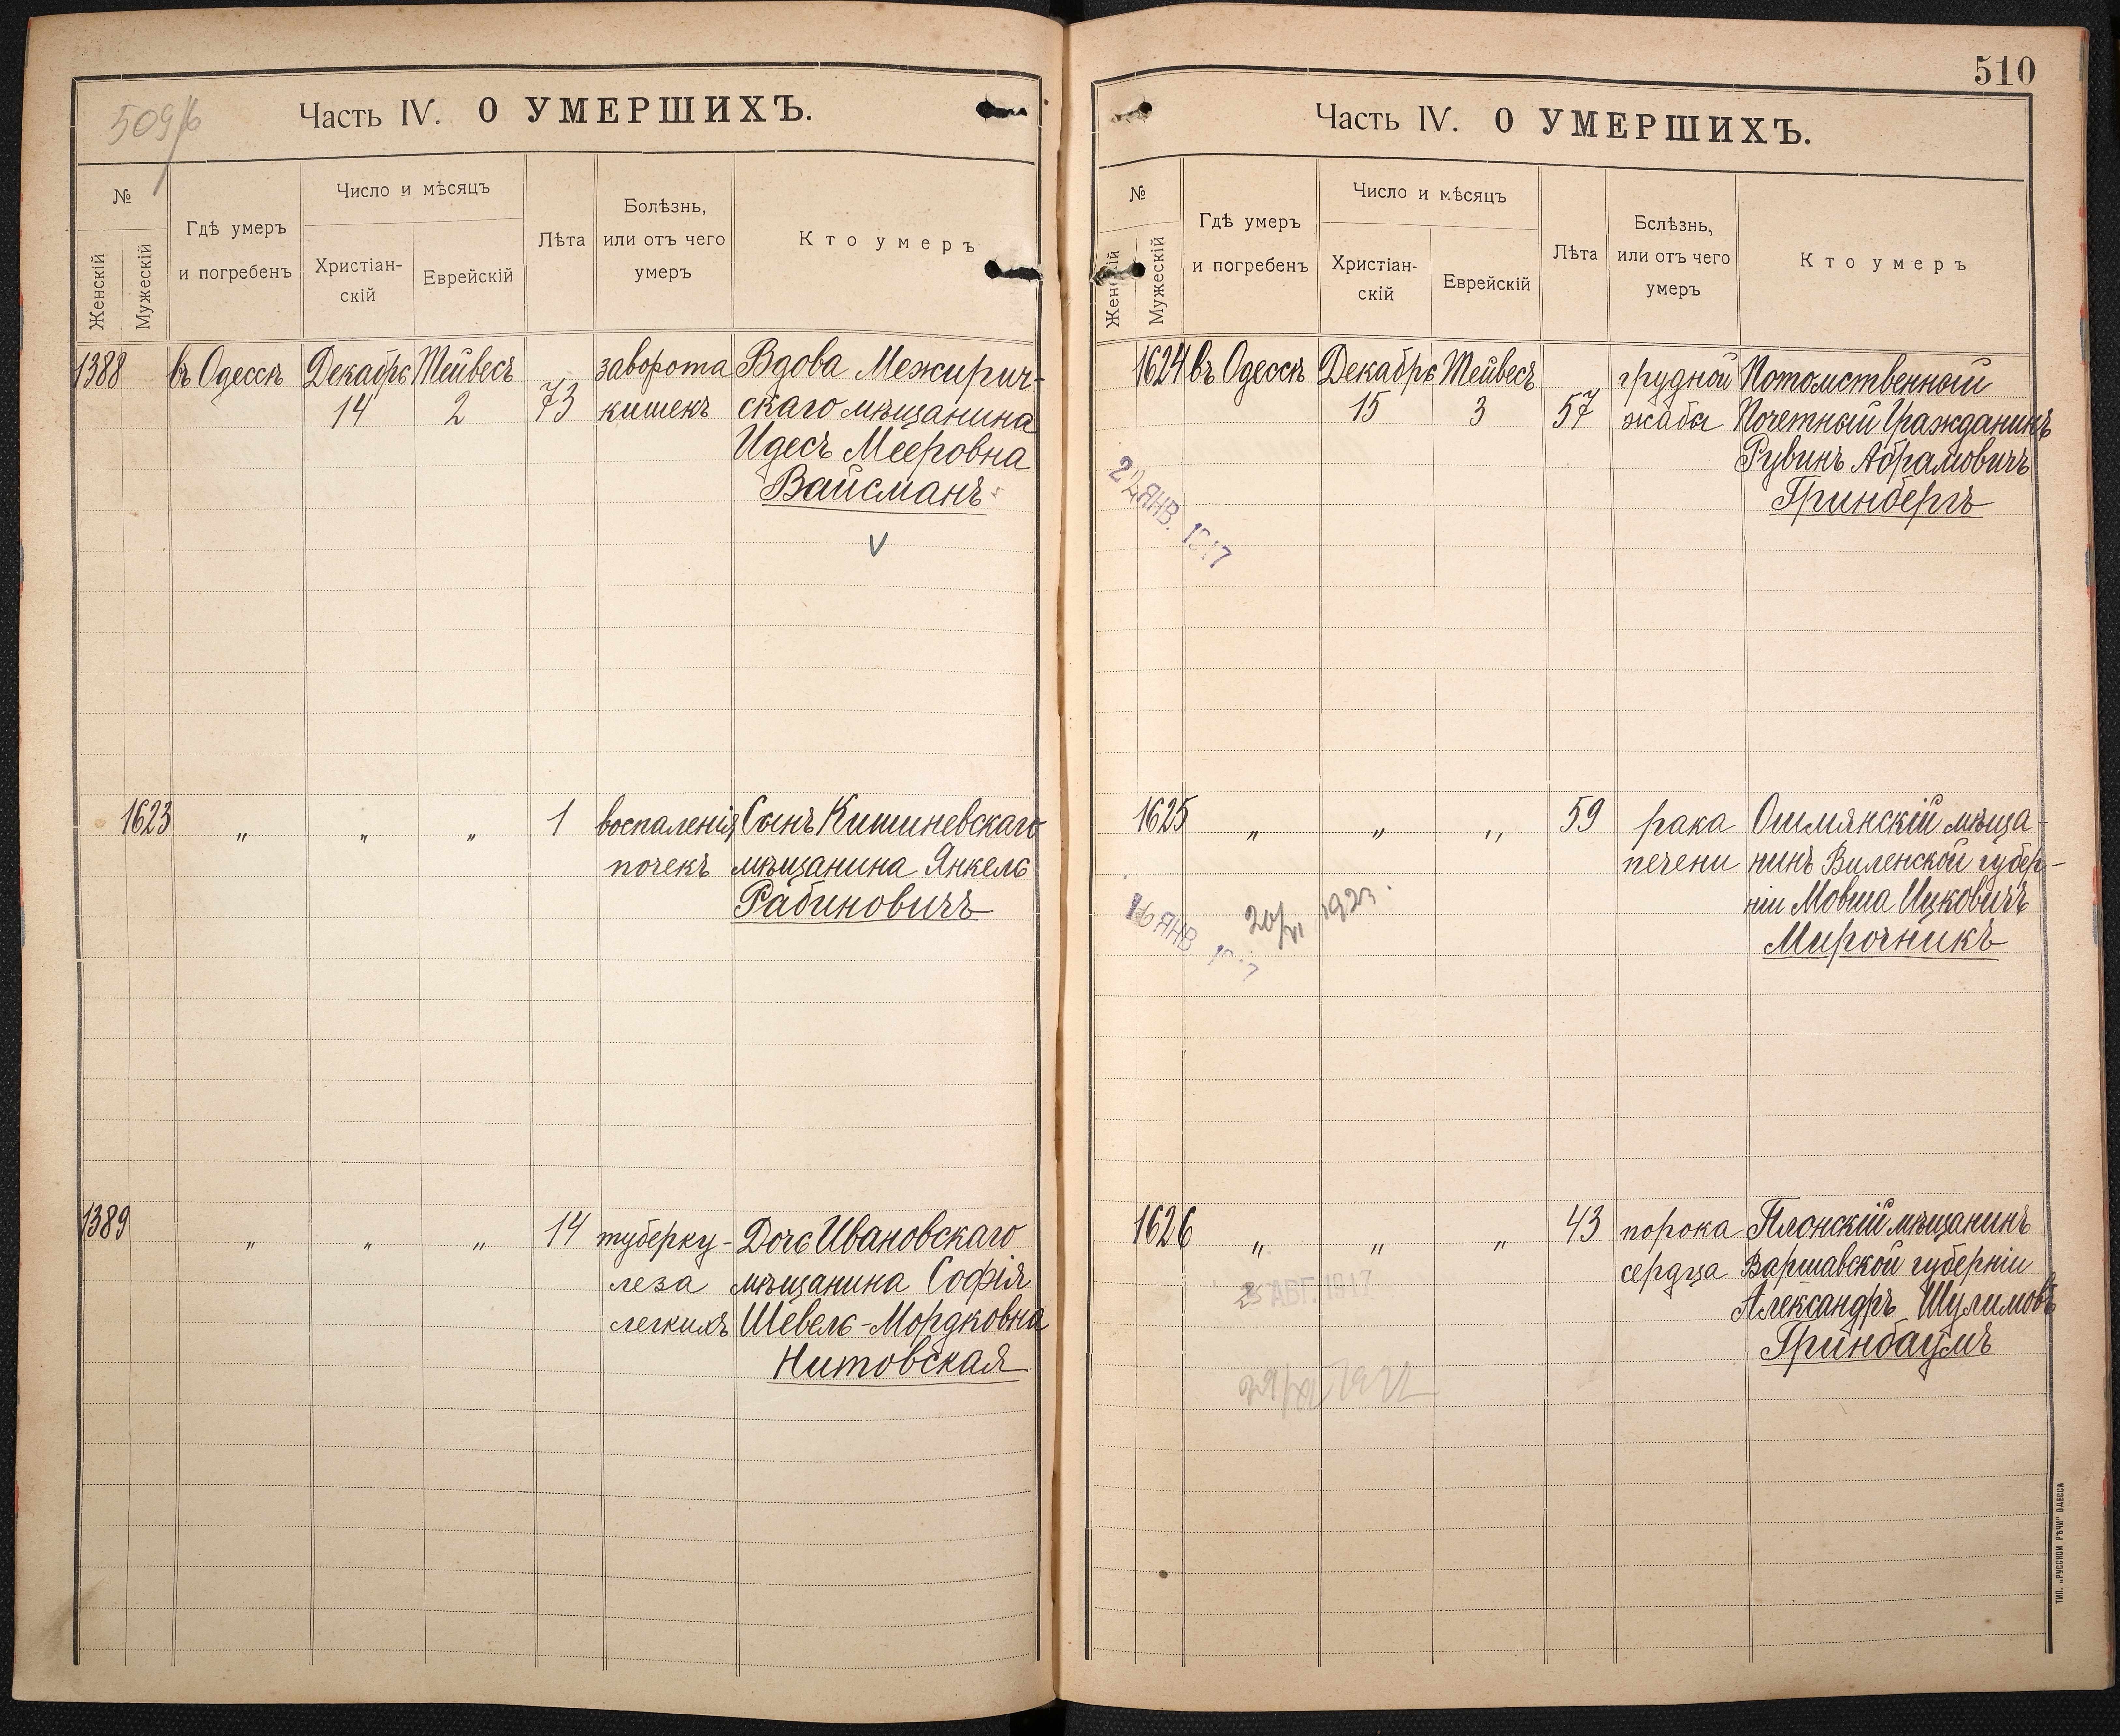 509/b
Часть IV. О УМЕРШИХЪ.
№
Женскій
Мужескій
Гдѣ умеръ
и погребенъ
Число и мѣсяцъ
Христіан-
скій
Еврейскій
Лѣта
Болѣзнь,
или отъ чего
умеръ
Кто умеръ
1388 въ Одессѣ Декабрь Тейвесъ заворота Вдова Межирич-
14 2 73 кишекъ скаго мѣщанина
Идесъ Мееровна
Вайсманъ
V
1623 „ „ „ 1 воспаленія Сынъ Кишиневскаго
почекъ мѣщанина Янкель
Рабиновичъ
1389 „ „ „ 14 туберку- Дочь Ивановскаго
леза мѣщанина Софія
легкихъ Шевель-Мордковна
Нитовская
510
Часть IV. О УМЕРШИХЪ.
№
Женскій
Мужескій
Гдѣ умеръ
и погребенъ
Число и мѣсяцъ
Христіан-
скій
Еврейскій
Лѣта
Бслѣзнь,
или отъ чего
умеръ
Кто умеръ
1624 въ Одессѣ Декабрь Тейвесъ грудной Потомственный
15 3 57 жабы Почетный Гражданинъ
Рувинъ Абрамовичъ
Гринбергъ
ЯНВ. 1917
1625 „ „ „ 59 рака Ошмянскій мѣща-
печени нинъ Виленской губер-
ніи Мовша Ицковичъ
Мирочникъ
16 ЯНВ.
20/VI 1923.
1626 „ „ „ 43 порока Плонскій мѣщанинъ
сердца Варшавской губерніи
Александръ Шулимовъ
Гринбаумъ
АВГ. 1917
ТИП. „РУССКОЙ РѢЧИ" ОДЕССА